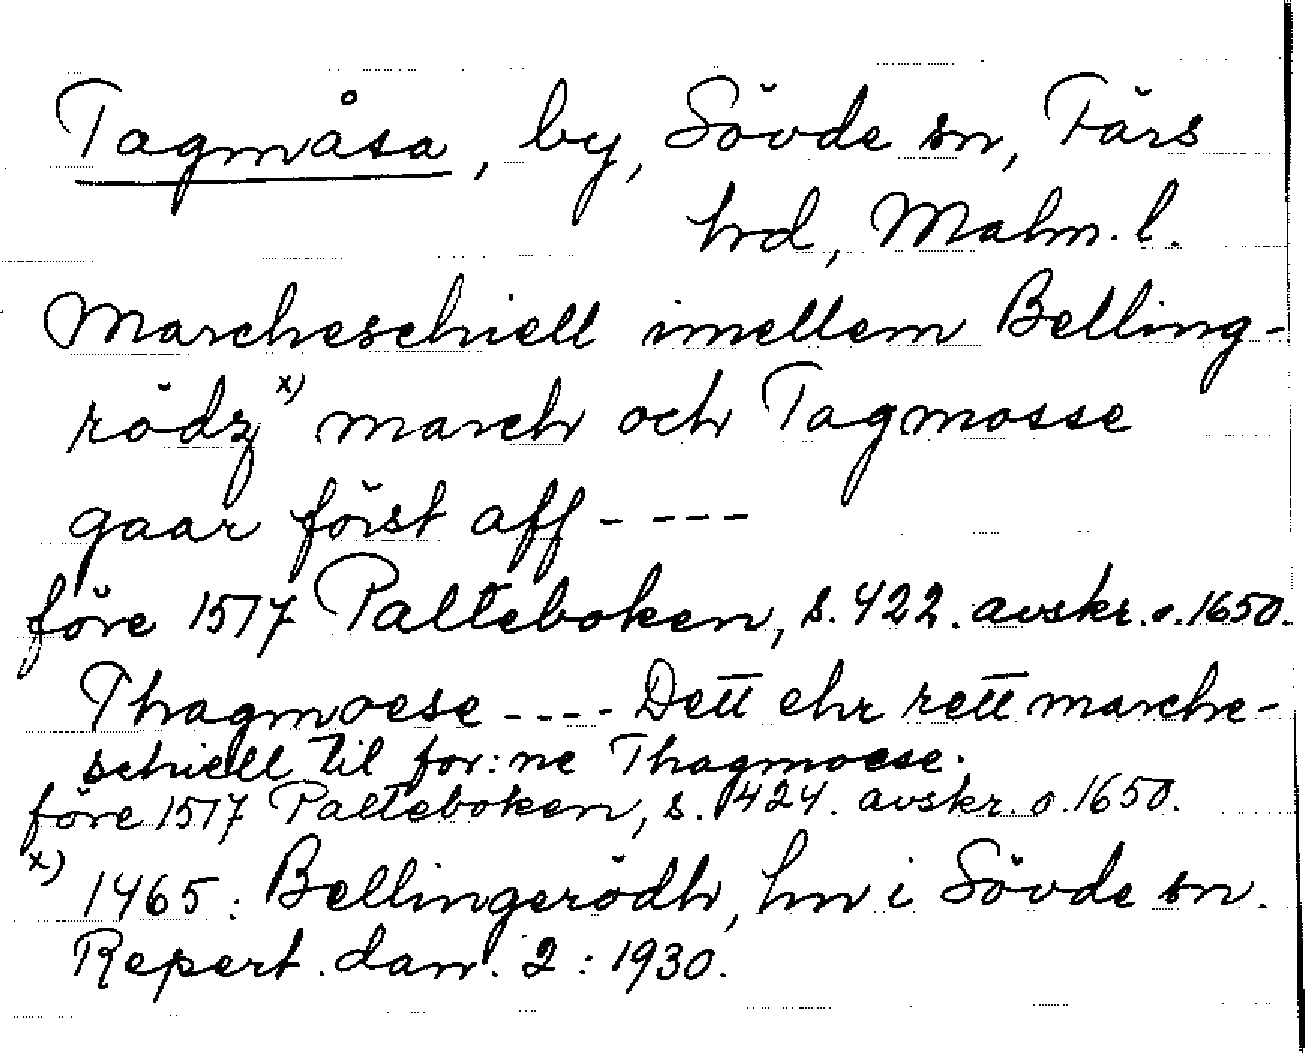 Tagmåsa, by, Sövde sn, Färs
hrd, Malm. l.
Marcheschiell imellem Belling-
rödz x) march och Tagmosse
gaar först aff - - - -
före 1517 Palteboken, s. 422. avskr. o. 1650.
Thagmoese - - - - Dett ehr rett marche-
schiell til for:ne Thagmoese.
före 1517 Palteboken, s. 424. avskr. o. 1650.
x) 1465: Bellingerödh, hm i Sövde sn.
Repert. dan. 2: 1930.